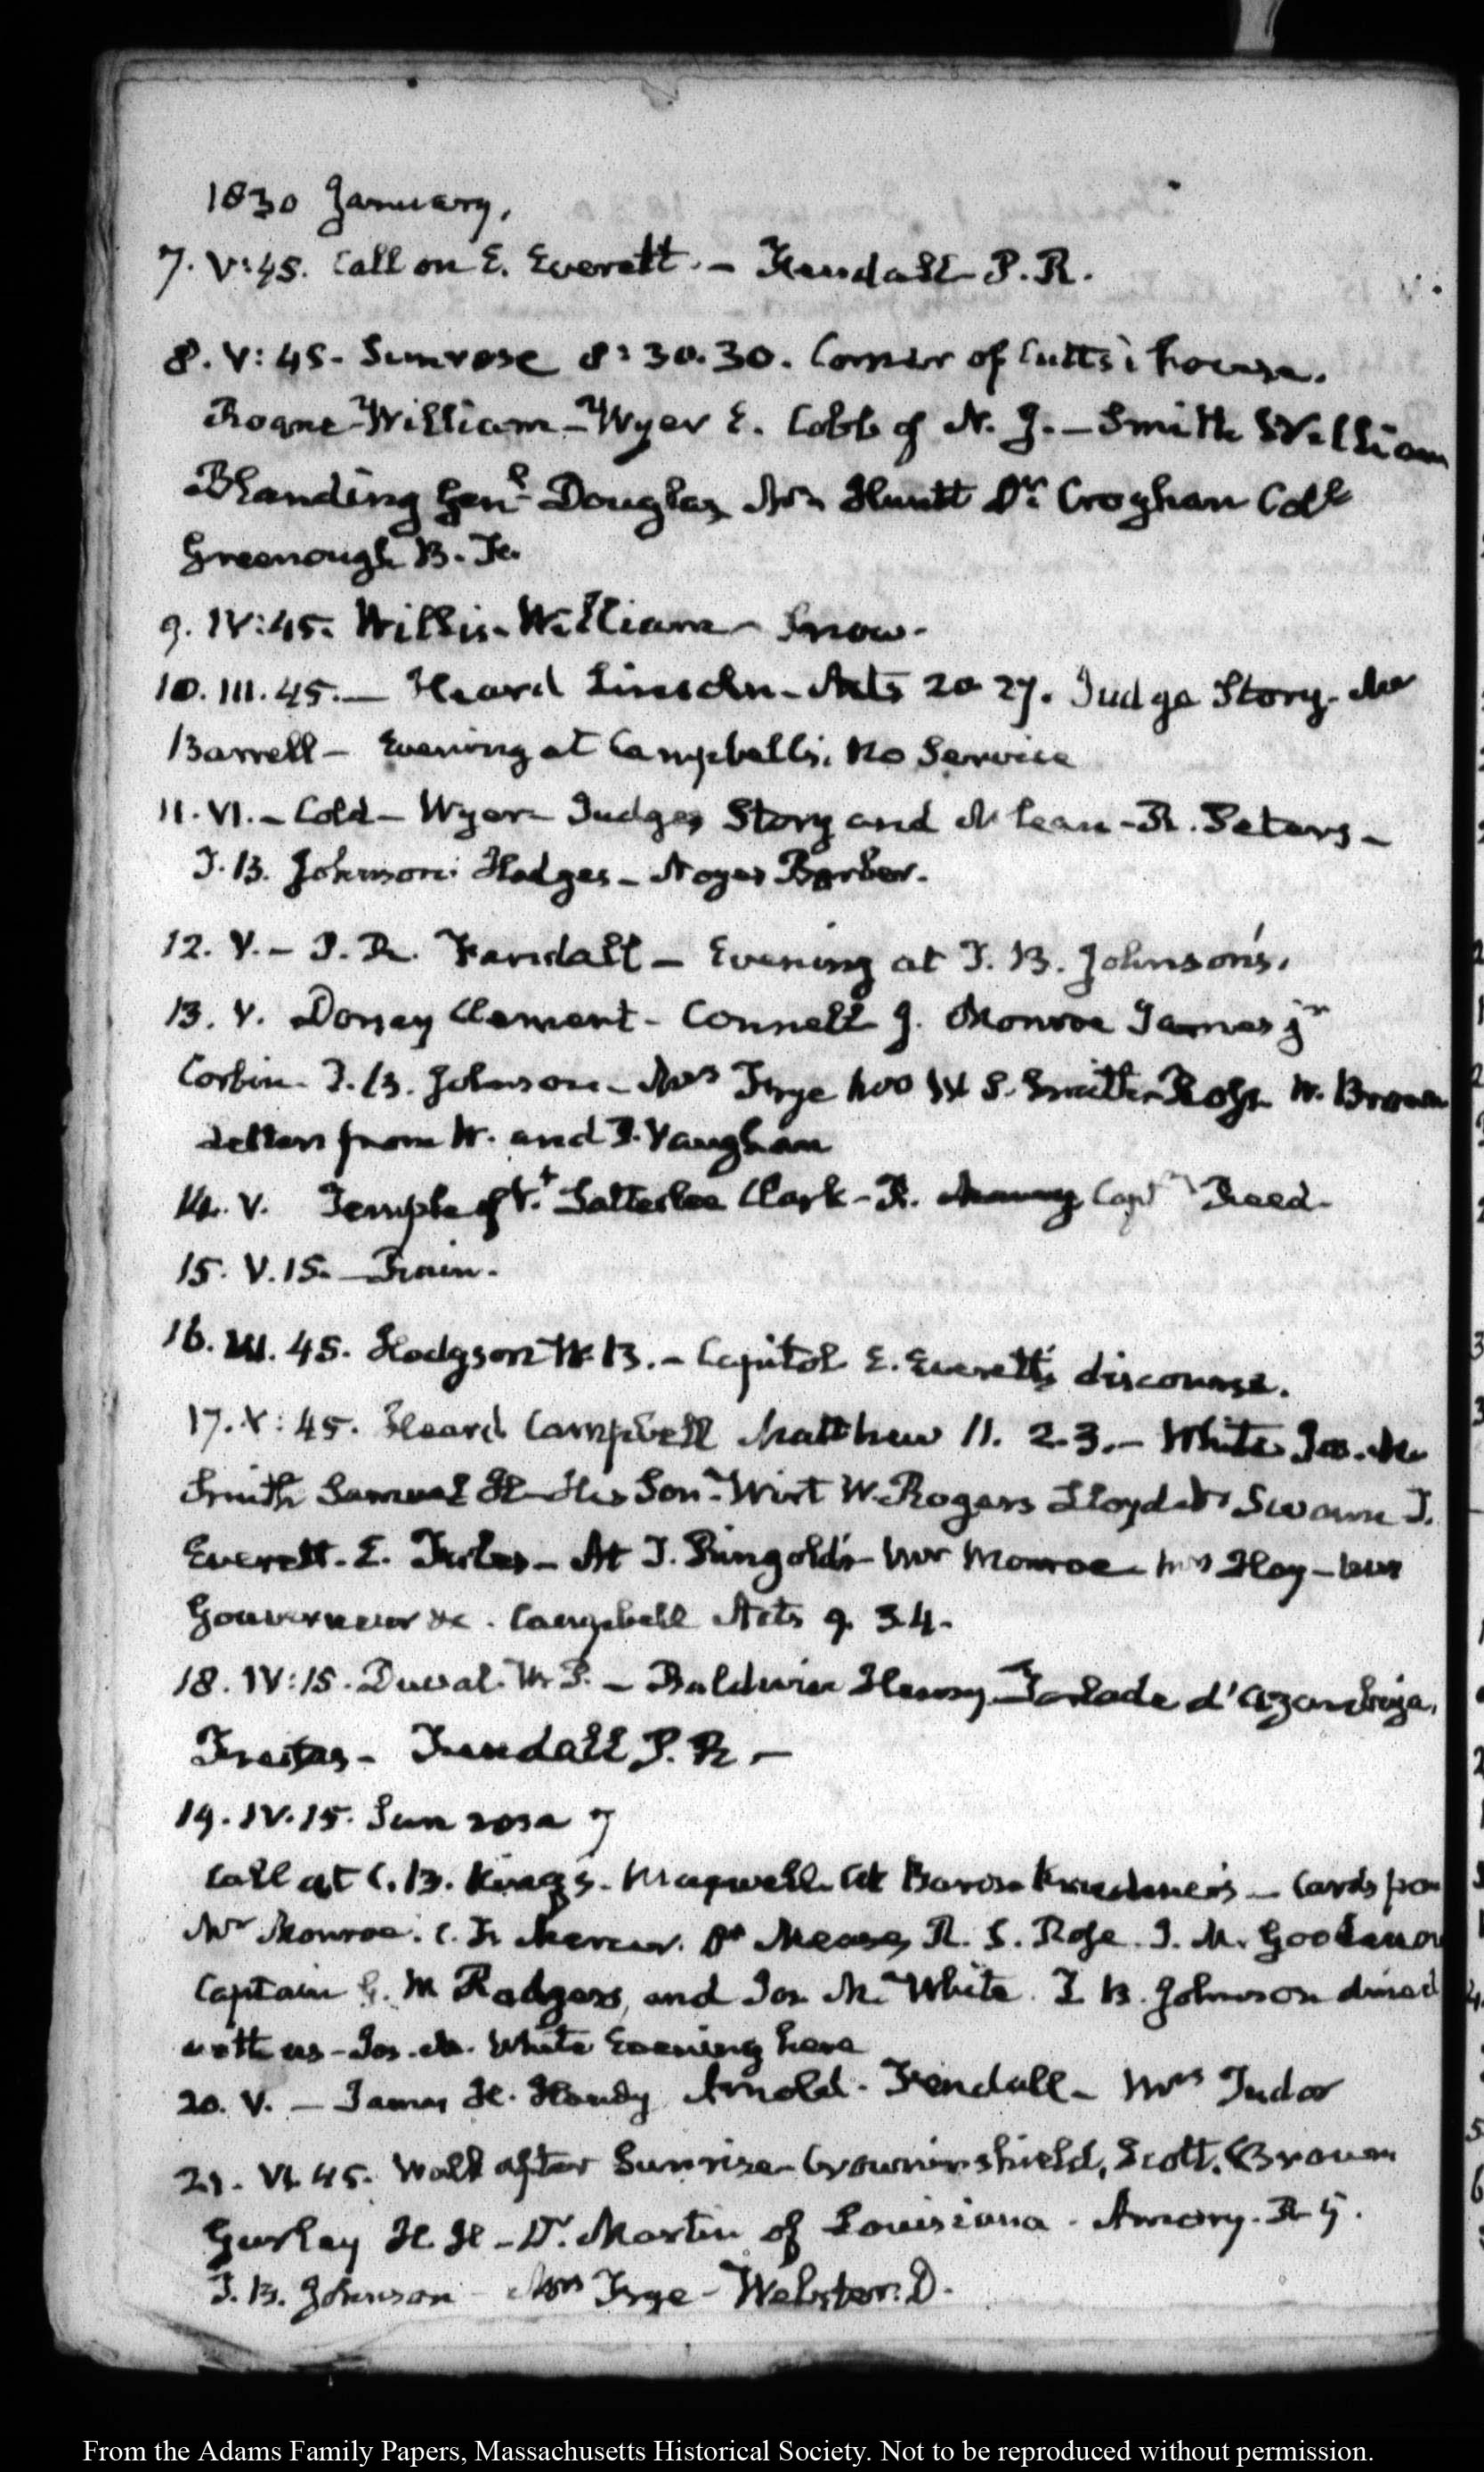 1830 January,
7. V:45. Call on E. Everett. – Fendall P. R.
8. V:45. Sunrose 8:30.30. Corner of Cutts's house.
Roane William – Wyer E. Cobb of N. J. – Smith William
Blanding Genl. Douglas Mrs Huntt Dr. Croghan Coll
Greenough B. K.
9. IV:45. Willis. William – Snow.
10. III.45. – Heard Acts 20 27. Judge Story. Mr
Barrell – Evening at Campbell's. No Service
11. VI. – Cold – Wyer – Judges Story and McLean – R. Peters –
T. B. Johnson. Hodges – Noyes Barber.
12. V. – P. R. Fendall – Evening at T. B. Johnson's.
13. V. Dorsey Clement – Connell J. Monroe James jr
Corbin. T. B. Johnson – Mrs Frye S. Smith – W. Brown
Letters from W. and P. Vaughan
14. V. Temple of Vt. Satterlee Clark – R. Capt Read.
15. V.15. – Rain.
16. 45. Hodgson W. B. – Capitol E. Everett's discourse.
17. V:45. Heard Campbell Matthew 11. 2.3. – White Jos. M.
Smith Samuel H – His Son. Wirt W. Rogers Lloyd Swann T.
Everett. E. – At T. Ringold's – Mr Monroe – Mrs Hay –
Gouverneur &c. Campbell Acts 9. 34.
18. IV:15. Duval. W. P. – Baldwin Henry – Torlade d'Azambuja.
Freitas – Fendall P. R. –
19. IV.15. Sun rose 7
Call at C. B. King's. Maxwell. At Baron Krudener's – Cards for
Mr Monroe. C. F. Mercer. Dr Mease, R. S. Rose. J. M. Goodenow
Captain G. M Rodgers, and Jos. M. White. T B. Johnson dined
with us – Jos. M. White Evening here
20. V. – James H. Handy Arnold. Fendall – Mrs Tudor
21. VI. 45. Walk after Sunrise – Crowninshield, Scott. Brown
Gurley H. H. – Dr. Martin of Louisiana. Amory. R G.
T. B. Johnson – Mrs Frye – Webster. D.
From the Adams Family Papers, Massachusetts Historical Society. Not to be reproduced without permission.